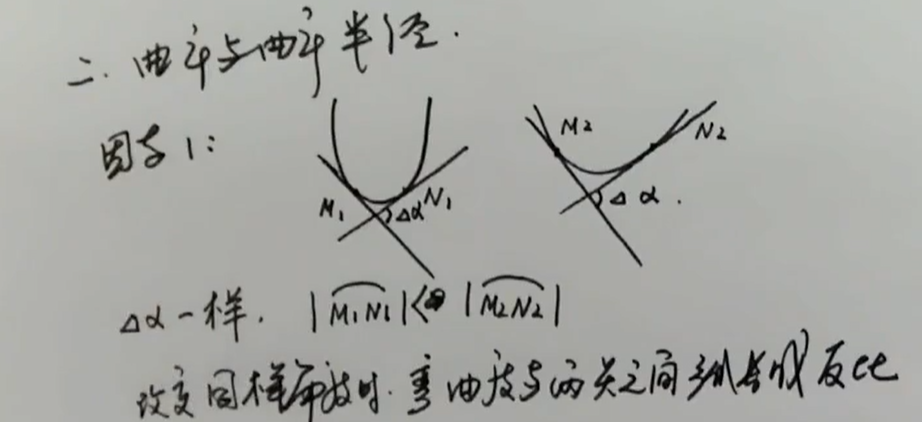 二. 曲率与曲率半径.
因子1:
M₁ Δα N₁ M₂ N₂ Δα.
Δα一样. |M₁N₁|< |M₂N₂|
改变同样角度时. 弯曲度与两点之间弧长成反比